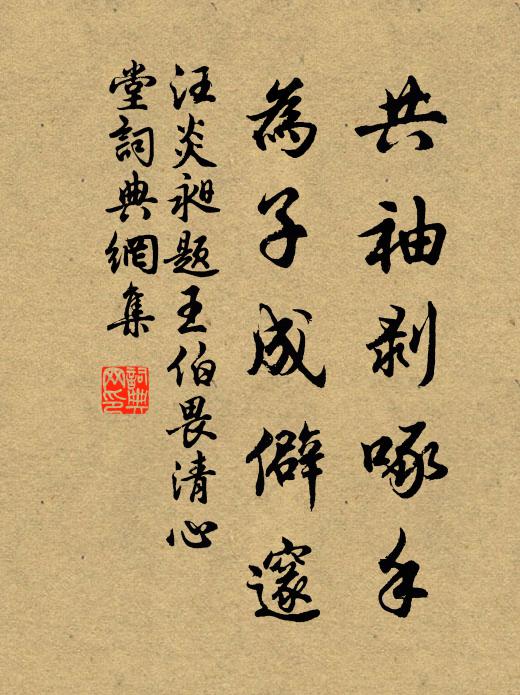 共袖剥啄手
為子成僻邃
汪炎昶题王伯畏清心
堂詞典網集
詞典
网印